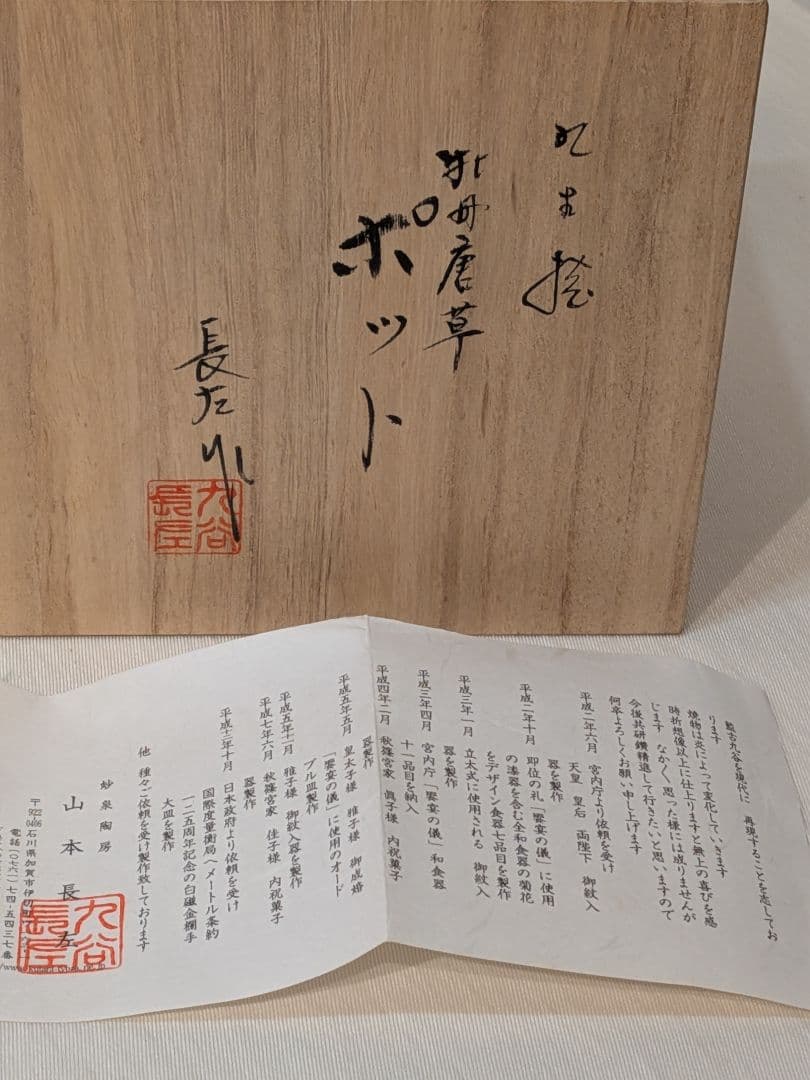 牡丹唐草
ポット
長左作
九谷
長左
藍古九谷を現代に 再現することを志してお
ります
焼物は炎によって変化していきます
時折想像以上に仕上りますと無上の喜びを感
じます なかく、思った様には成りませんが
今後共研鑽精進して行きたいと思いますので
何卒よろしくお願い申し上げます
平成二年六月 宮内庁より依頼を受け
天皇 皇后 両陛下 御紋入
器を製作
平成二年十月 即位の礼「饗宴の儀」に使用
の漆器を含む全和食器の菊花
をデザイン食器七品目を製作
平成三年一月 立太式に使用される 御紋入
器を製作
平成三年四月 宮内庁「饗宴の儀」和食器
十一品目を納入
平成四年二月 秋篠宮家 眞子様 内祝菓子
器製作
平成五年五月 皇太子様 雅子様 御成婚
「饗宴の儀」に使用のオード
ブル皿製作
平成五年十一月 雅子様 御紋入器を製作
平成七年六月 秋篠宮家 佳子様 内祝菓子
器製作
平成十二年十月 日本政府より依頼を受け
国際度量衡局へメートル条約
一二五周年記念の白磁金襴手
大皿を製作
他 種々ご依頼を受け製作致しております
妙泉陶房
山本長左
〒922-0406 石川県加賀市伊切町
電話(〇七六一)七四-五四三七番
九谷
長左